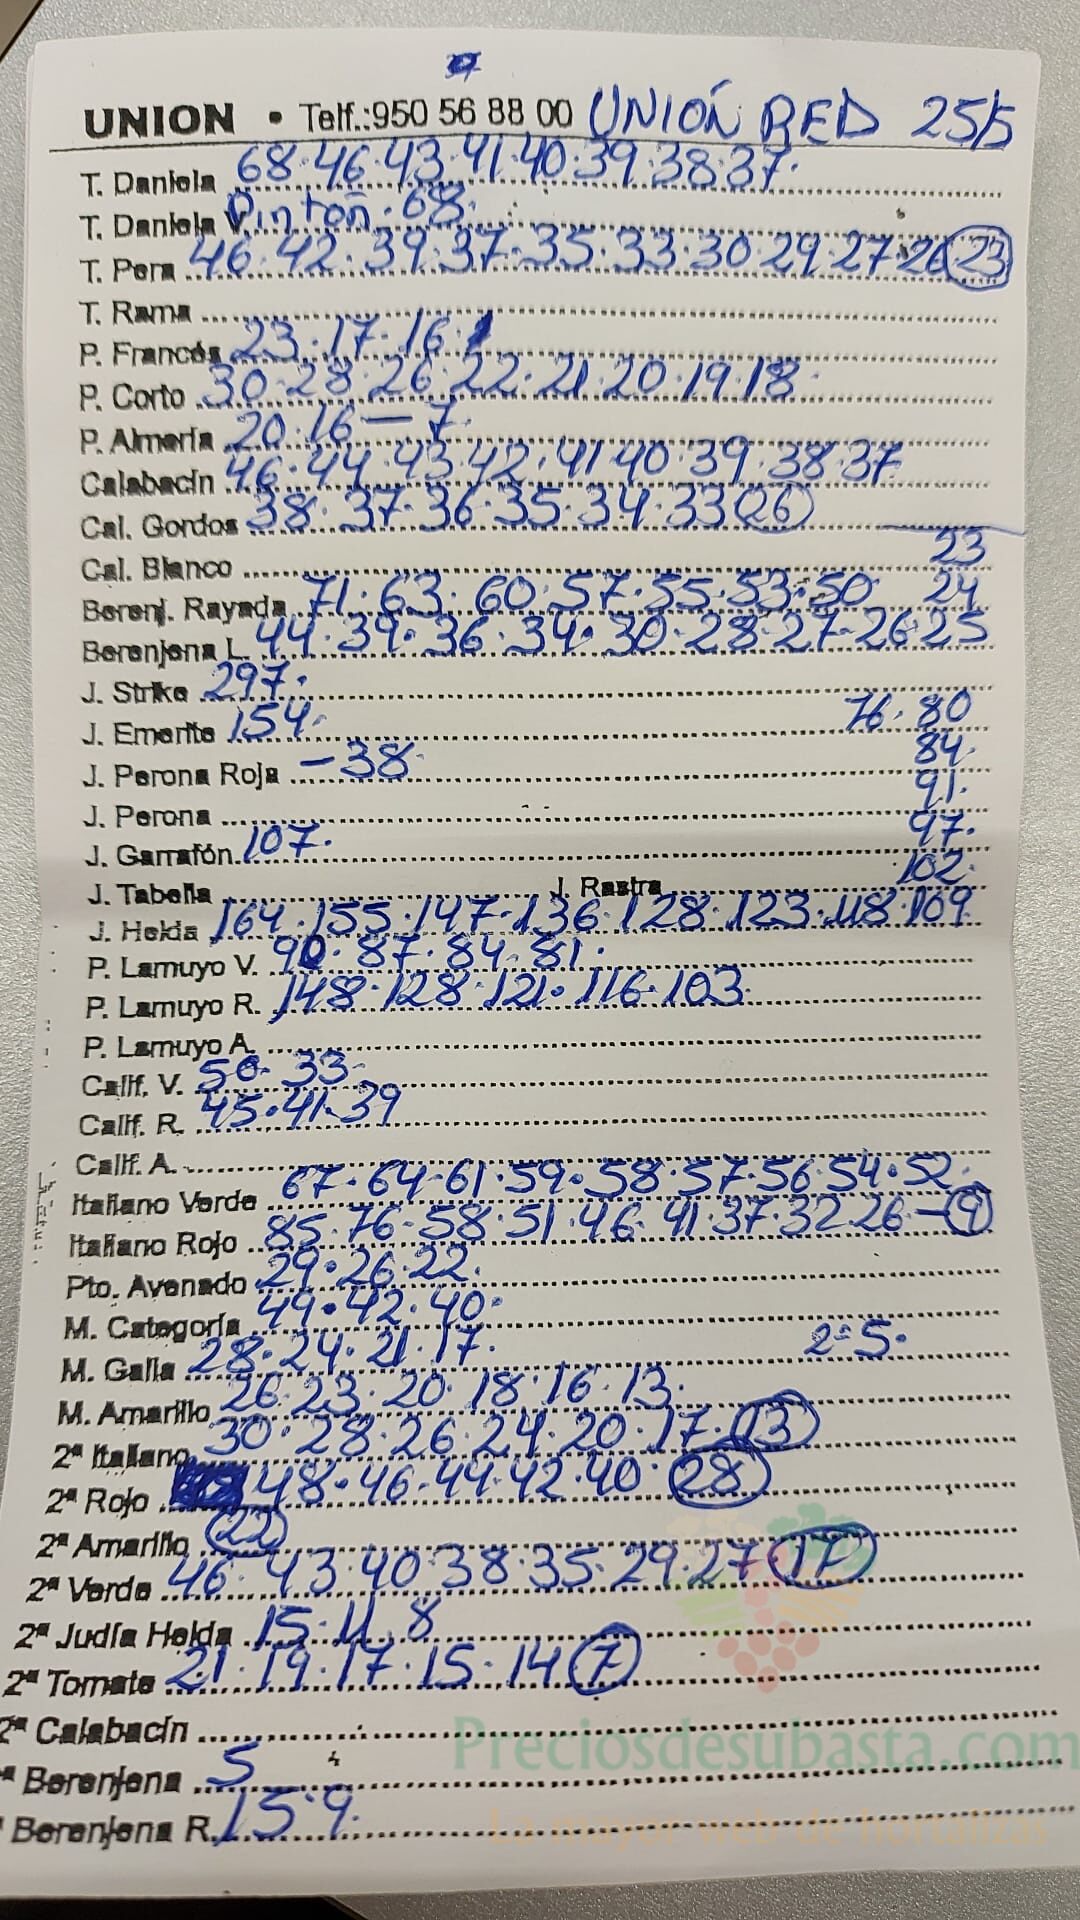 UNION • Telf.:950 56 88 00 UNIÓN RED 25/5
T. Daniela 68·46·43·41·40·39·38·37·
T. Daniela V. Pintoñ·68·
T. Pera 46·42·39·37·35·33·30·29·27·26 23
T. Rama
P. Francés 23·17·16·
P. Corto 30·28·26·22·21·20·19·18·
P. Almería 20·16—7·
Calabacín 46·44·43·42·41·40·39·38·37
Cal. Gordos 38·37·36·35·34·33 26
Cal. Blanco 23
Berenj. Rayada 71·63·60·57·55·53·50 24
Berenjena L. 44·39·36·34·30·28·27·26·25
J. Strike 297·
J. Emerite 154· 76·80
J. Perona Roja —38· 84·
J. Perona 91·
J. Garrafón 107· 97·
J. Tabella J. Rastra 102·
J. Helda 164·155·147·136·128·123·118·109
P. Lamuyo V. 90·87·84·81·
P. Lamuyo R. 148·128·121·116·103
P. Lamuyo A.
Calif. V. 50·33·
Calif. R. 45·41·39
Calif. A.
Italiano Verde 67·64·61·59·58·57·56·54·52·
Italiano Rojo 85·76·58·51·46·41·37·32·26—9
Pto. Avenado 29·26·22·
M. Categoría 49·42·40·
M. Galia 28·24·21·17· 2ª5·
M. Amarillo 26·23·20·18·16·13·
2ª Italiano 30·28·26·24·20·17·13
2ª Rojo 48·46·44·42·40· 28
2ª Amarillo 22
2ª Verde 46·43·40·38·35·29·27 17
2ª Judía Helda 15·11·8
2ª Tomate 21·19·17·15·14 7
2ª Calabacín
ª Berenjena 5
Berenjena R. 15·9·
Preciosdesubasta.com
La mayor web de hortalizas